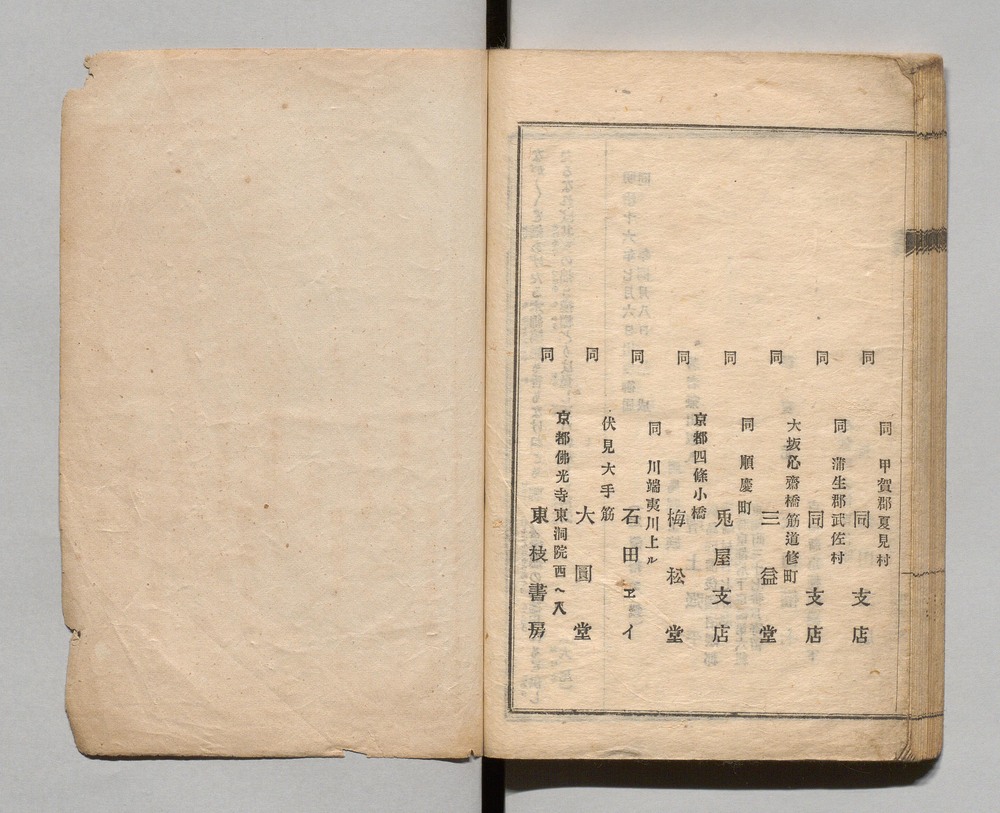 同
同 甲賀郡夏見村
同支店
同
同 蒲生郡武佐村
同支店
同
大坂心齋橋筋道修町
三益堂
同
同 順慶町
兎屋支店
同
京都四條小橋
梅松堂
同
同 川端夷川上ル
石田ヱイ
同
伏見大手筋
大圓堂
同
京都佛光寺東洞院西ヘ入
東枝書房